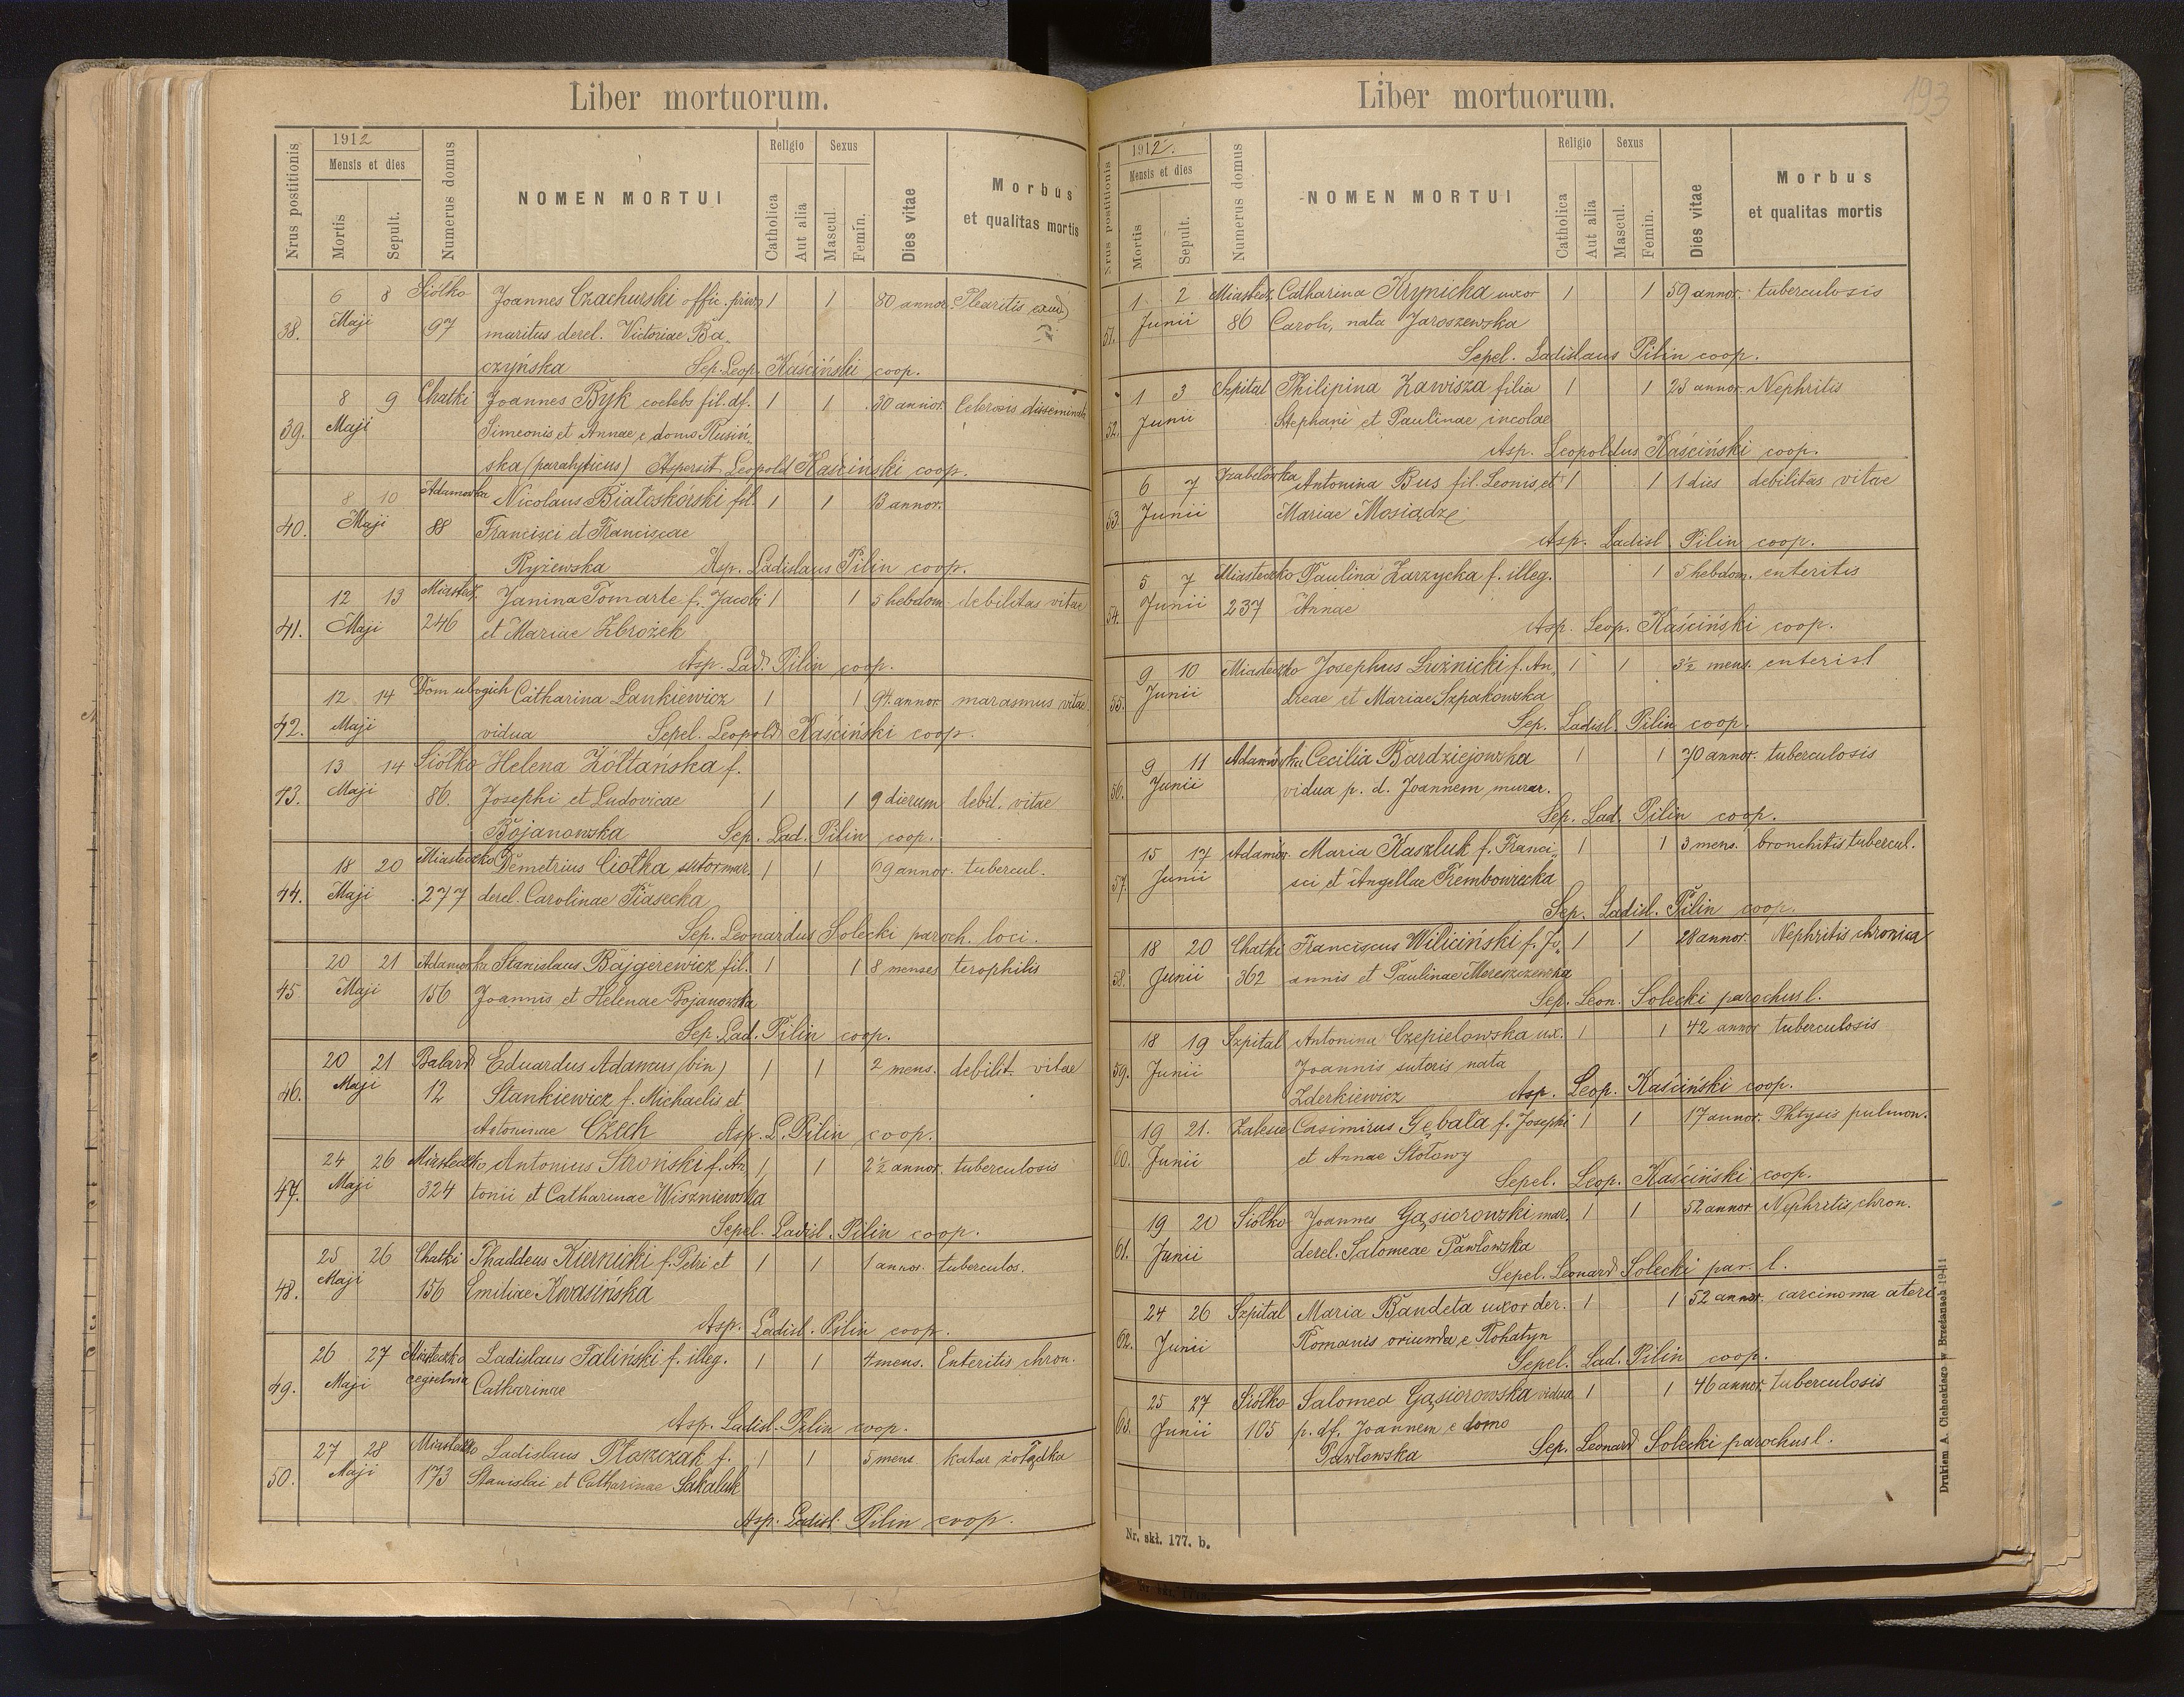 Liber mortuorum.
Nrus postitionis
1912
Mensis et dies
Mortis
Sepult.
Numerus domus
NOMEN MORTUI
Religio
Catholica
Aut alia
Sexus
Mascul.
Femin.
Dies vitae
Morbus
et qualitas mortis
6 8 Siółko Joannes Czachurski offic. priv. 1 1 80 annor. Plearitis exud
38. Maji 97 maritus derel. Victoriae Ba„
czyńska Sep. Leop. Kaściński coop.
8 9 Chatki Joannes Byk coelebs fil. df. 1 1 30 annor. Sclerosis disseminata
39. Maji Simeonis et Annae e domo Rusiń„
ska (paralyticus) Aspersit Leopold Kaściński coop.
8 10 Adamovka Nicolaus Białoskórski fil. 1 1 13 annor.
40. Maji 88 Francisci et Franciscae
Ryżewska Asp. Ladislaus Pilin coop.
12 13 Miastecz. Janina Tomarte f. Jacobi 1 1 5 hebdom debilitas vitae
41. Maji 246 et Mariae Zbrożek
Asp. Lad. Pilin coop.
12 14 Dom ubogich Catharina Lankiewicz 1 1 94 annor marasmus vitae
42. Maji vidua Sepel. Leopold Kaściński coop.
13 14 Siółko Helena Żółtańska f.
43. Maji 86. Josephi et Ludovicae 1 1 9 dierum debil. vitae
Bojanowska Sep. Lad. Pilin coop.
18 20 Miasteczko Demetrius Ciołka sutor mar. 1 1 69 annor. tubercul.
44. Maji 277 derel. Carolinae Piasecka
Sep. Leonardus Solecki paroch. loci.
20 21 Adamovka Stanislaus Bajgerewicz fil. 1 1 8 menses terophilis
45 Maji 156 Joannis et Helenae Bojanowska
Sep. Lad. Pilin coop.
20 21 Balard Eduardus Adamus (bin) 1 1 2 mens. debilit. vitae
46. Maji 12 Stankiewicz f. Michaelis et
Antoninae Czech Asp. L. Pilin coop.
24 26 Miasteczko Antonius Stroński f. An 1 1 2½ annor. tuberculosis
47. Maji 324 tonii et Catharinae Wiszniewska
Sepel. Ladisl. Pilin coop.
25 26 Chatki Thaddeus Kiernicki f. Petri et 1 1 1 annor. tuberculos.
48. Maji 156 Emiliae Kwasińska
Asp. Ladisl. Pilin coop.
26 27 Miasteczko Ladislaus Faliński f. illeg. 1 1 4 mens. Enteritis chron.
49. Maji cegielnia Catharinae
Asp. Ladisl. Pilin coop.
27 28 Miasteczko Ladislaus Płaszczak f. 1 1 5 mens. katar żołądka
50. Maji 173 Stanislai et Catharinae Sakaluk
Asp. Ladisl. Pilin coop.
Liber mortuorum.
193
Nrus postitionis
1912.
Mensis et dies
Mortis
Sepult.
Numerus domus
NOMEN MORTUI
Religio
Catholica
Aut alia
Sexus
Mascul.
Femin.
Dies vitae
Morbus
et qualitas mortis
1 2 Miastecz. Catharina Krynicka uxor 1 1 59 annor. tuberculosis
51. Junii 86 Caroli, nata Jaroszewska
Sepel. Ladislaus Pilin coop.
1 3 Szpital Philipina Zawisza filia 1 1 23 annor. Nephritis
52. Junii Stephani et Paulinae incolae
Asp. Leopoldus Kaściński coop.
6 7 Izabelówka Antonina Bus fil. Leonis et 1 1 1 dies debilitas vitae
53. Junii Mariae Mosiądze
Asp. Ladisl. Pilin coop.
5 7 Miasteczko Paulina Zarzycka f. illeg. 1 5 hebdom. enteritis
54. Junii 237 Annae
Asp. Leop. Kaściński coop.
9 10 Miasteczko Josephus Luźnicki f. An„ 1 1 3½ mens. enterist
55. Junii dreae et Mariae Szpakowska
Sep. Ladisl. Pilin coop.
9 11 Adamówka Cecilia Bardziejowska 1 1 70 annor. tuberculosis
56. Junii vidua p. d. Joannem murar.
Sep. Lad. Pilin coop.
15 17 Adamów. Maria Kaszluk f. Franci„ 1 1 3 mens. bronchitis tubercul.
57. Junii sci et Angellae Trembowecka
Sep. Ladisl. Pilin coop.
18 20 Chatki Franciscus Wiliciński f. Jo„ 1 1 28 annor. Nephritis chronica
58. Junii 362 annis et Paulinae Mereszczewska
Sep. Leon. Solecki parochus l.
18 19 Szpital Antonina Czepielowska ux. 1 1 42 annor tuberculosis
59. Junii Joannis sutoris nata
Zderkiewicz Asp. Leop. Kaściński coop.
19 21. Zalesie Casimirus Gębala f. Josephi 1 1 17 annor. Phtysis pulmon.
60. Junii et Annae Stołowy
Sepel. Leop. Kaściński coop.
19 20 Siółko Joannes Gąsiorowski mar. 1 1 52 annor Nephritis chron.
61. Junii derel. Salomeae Pawłowska
Sepel. Leonard Solecki par. l.
24 26 Szpital Maria Bandeta uxor der. 1 1 52 annor. carcinoma uteri
62. Junii Romanis oriunda e Rohatyn
Sepel. Lad. Pilin coop.
25 27 Siółko Salomea Gąsiorowska vidua 1 1 46 annor. tuberculosis
63. Junii 105 p. df. Joannem e domo
Pawłowska Sep. Leonard Solecki parochus l.
Nr. skł. 177. b.
Drukiem A. Cichockiego w Brzeżanach 1911